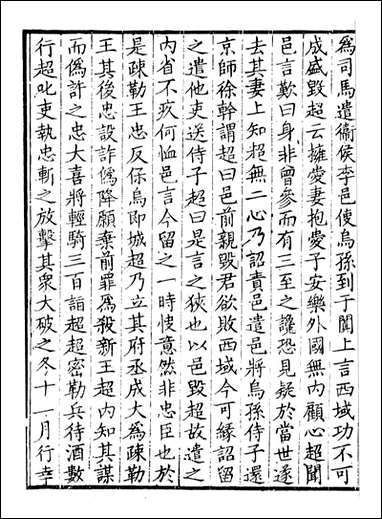 為司馬遣衞侯李邑使烏孫到于闐上言西域功不可
成盛毀超云擁愛妻抱愛子安樂外國無內顧心超聞
邑言歎曰身非曾參而有三至之讒恐見疑於當世遂
去其妻上知超無二心乃詔責邑遣邑將烏孫侍子還
京師徐幹謂超曰邑前親毀君欲敗西域今可緣詔留
之遣他吏送侍子超曰是言之狹也以邑毀超故遣之
內省不疚何恤邑言今留之一時快意然非忠臣也於
是疎勒王忠反保烏即城超乃立其府丞成大為疎勒
王其後忠設詐偽降願棄前罪為殺新王超內知其謀
而偽許之忠大喜將輕騎三百詣超超密勒兵待酒數
行超叱吏執忠斬之放擊其衆大破之冬十一月行幸